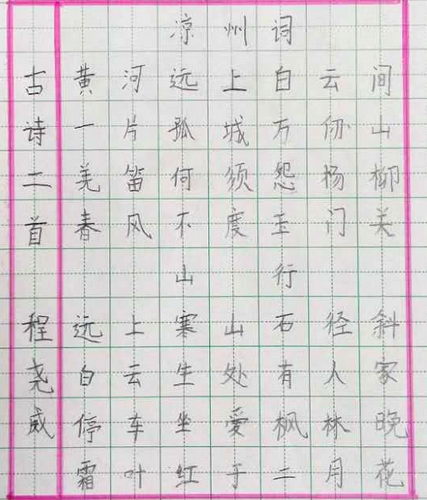 古诗二首 程尧威
凉州词
黄河远上白云间
一片孤城万仞山
羌笛何须怨杨柳
春风不度玉门关
山行
远上寒山石径斜
白云生处有人家
停车坐爱枫林晚
霜叶红于二月花